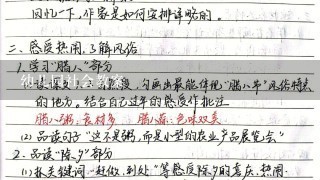 回忆一下,作家是如何安排详略的。
二、感受热闹,了解风俗
1.学习“腊八”部分
勾画出最能体现“腊八节”风俗特点
的地方。结合自己过年的感受作批注
腊八粥:食材多 腊八蒜:色味双美
(2)品读句子“这不是粥,而是小型的农业产品展览会”
2.品读“除夕”部分
(1)抓关键词“赶做,到处”等感受除夕的喜庆、热闹